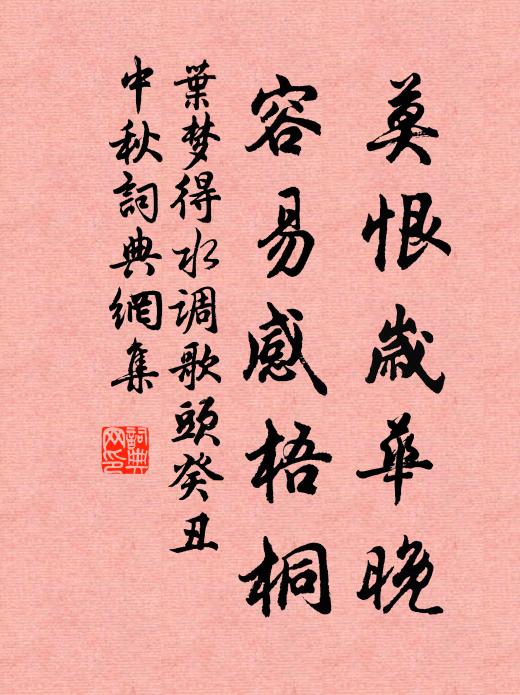 莫恨歲華晚
容易感梧桐
葉梦得水调歌頭癸丑
中秋詞典網集
詞典网印